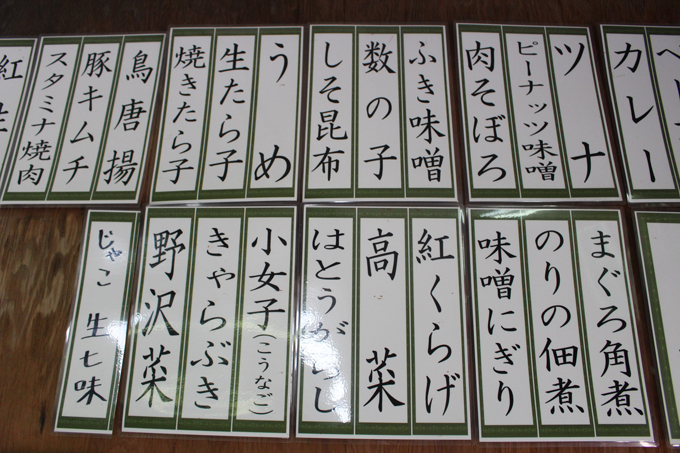 カレー
ツナ
ピーナッツ味噌
肉そぼろ
ふき味噌
数の子
しそ昆布
うめ
生たら子
焼きたら子
鳥唐揚
豚キムチ
スタミナ焼肉
紅
まぐろ角煮
のりの佃煮
味噌にぎり
紅くらげ
高菜
はとうがらし
小女子(こうなご)
きゃらぶき
野沢菜
じゃこ 生七味